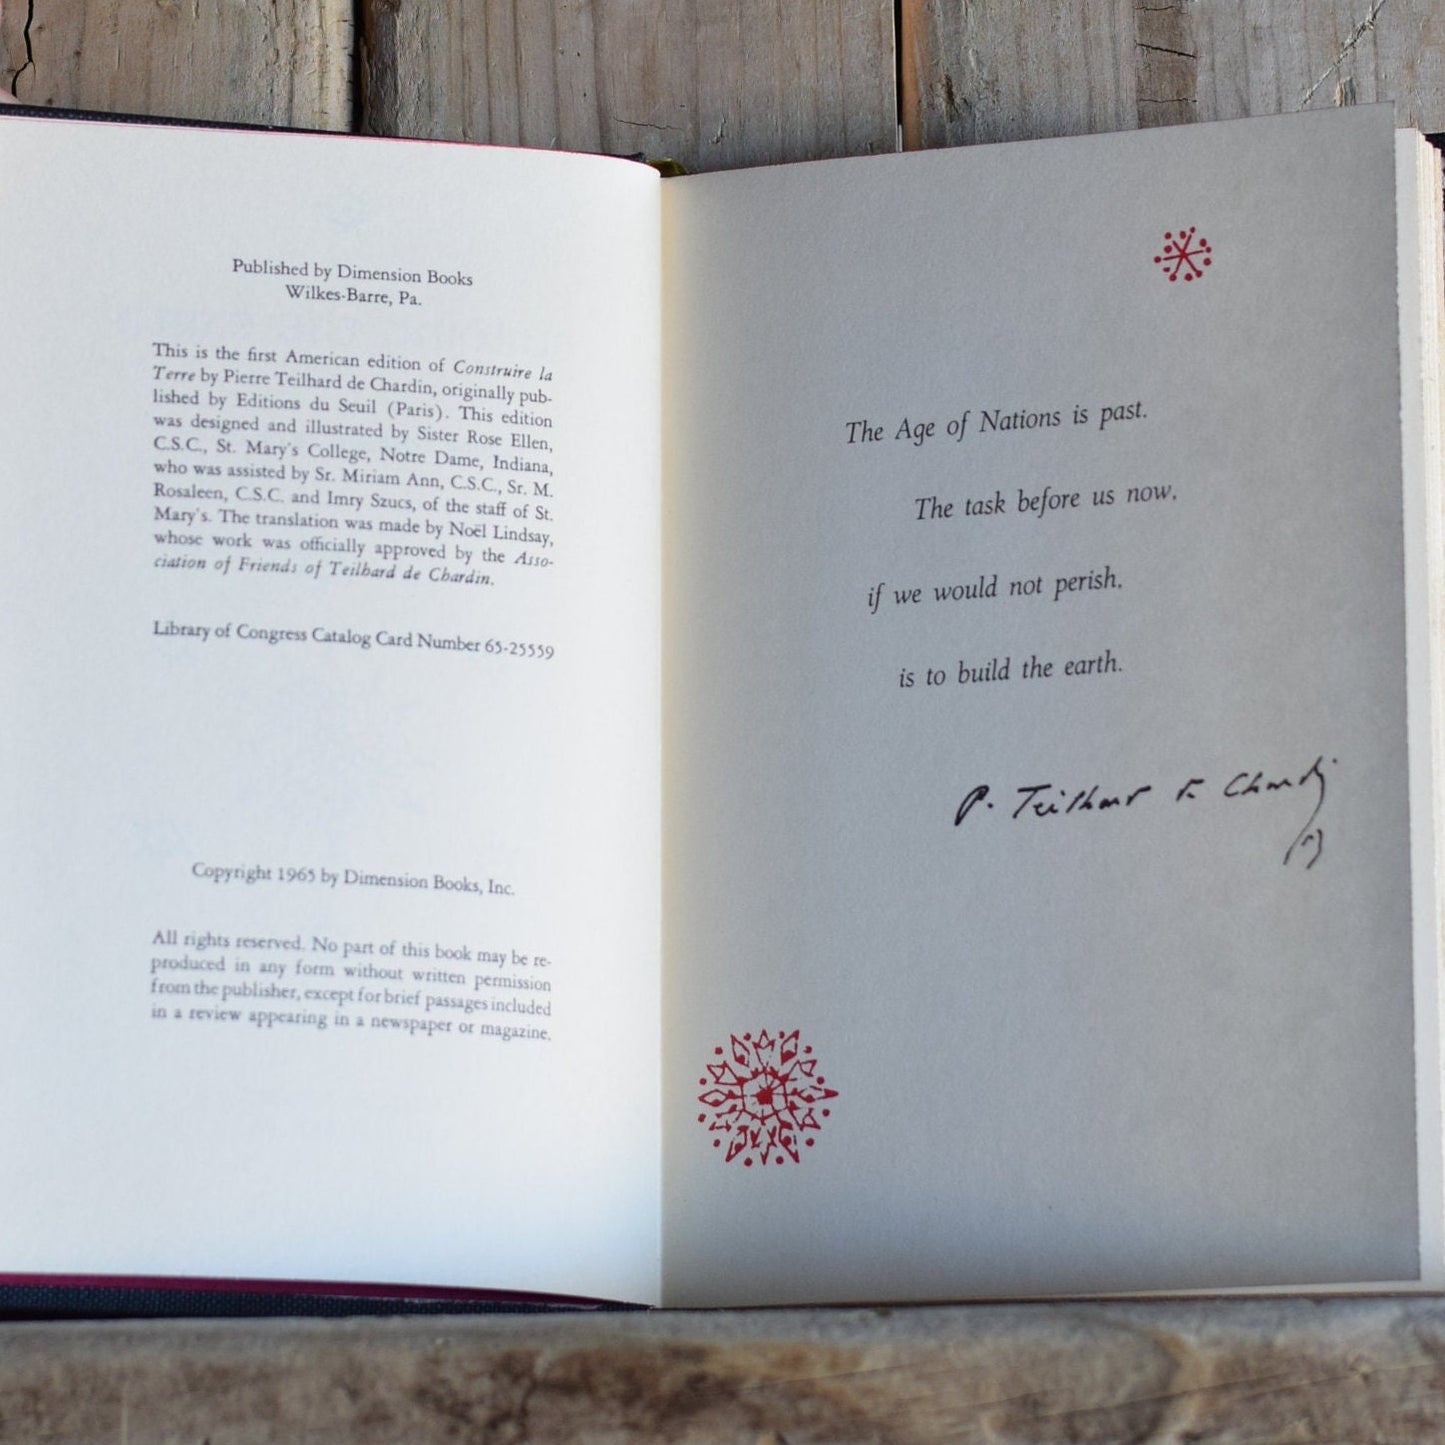 Published by Dimension Books
Wilkes-Barre, Pa.
This is the first American edition of Construire la
Terre by Pierre Teilhard de Chardin, originally pub-
lished by Editions du Seuil (Paris). This edition
was designed and illustrated by Sister Rose Ellen,
C.S.C., St. Mary's College, Notre Dame, Indiana,
who was assisted by Sr. Miriam Ann, C.S.C., Sr. M.
Rosaleen, C.S.C. and Imry Szucs, of the staff of St.
Mary's. The translation was made by Noël Lindsay,
whose work was officially approved by the Asso-
ciation of Friends of Teilhard de Chardin.
Library of Congress Catalog Card Number 65-25559
Copyright 1965 by Dimension Books, Inc.
All rights reserved. No part of this book may be re-
produced in any form without written permission
from the publisher, except for brief passages included
in a review appearing in a newspaper or magazine.
The Age of Nations is past.
The task before us now,
if we would not perish,
is to build the earth.
P. Teilhard de Chardin